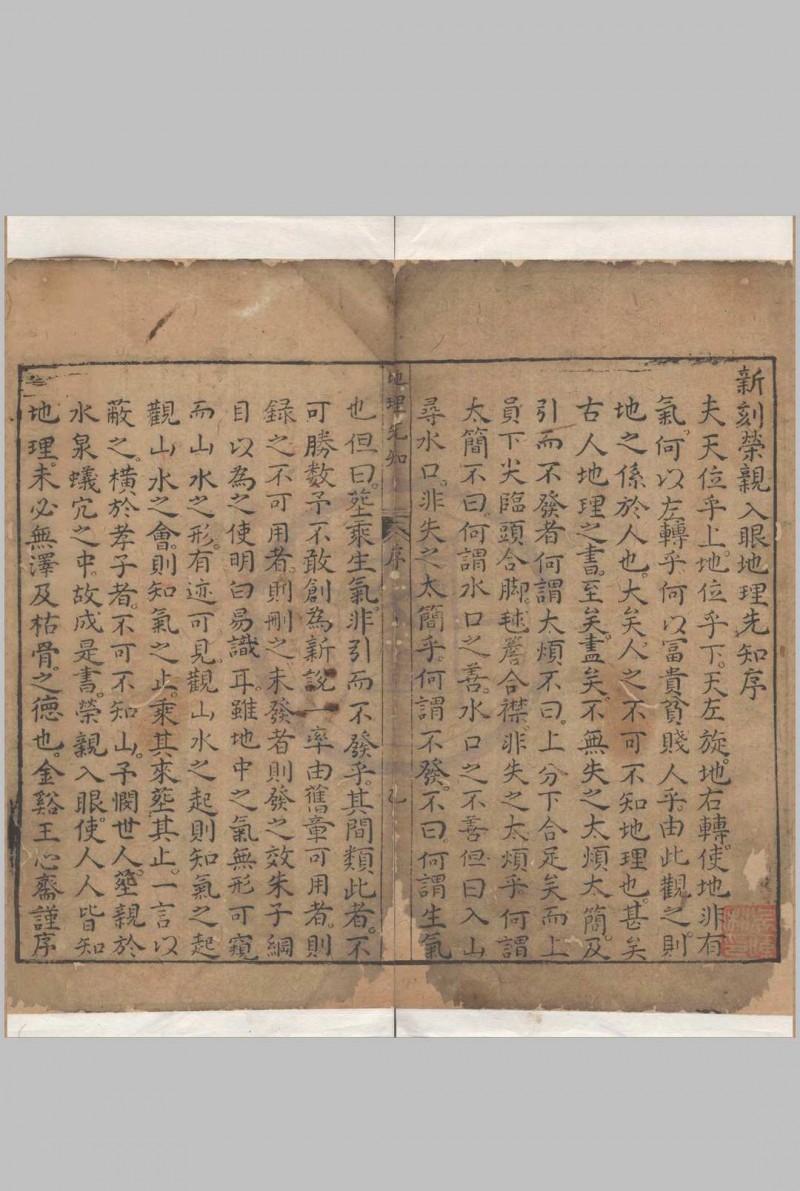 新刻榮親入眼地理先知序
夫天位乎上。地位乎下。天左旋。地右轉。使地非有
氣。何以左轉乎。何以富貴貧賤人乎。由此觀之。則
地之係於人也。大矣。人之不可不知地理也。甚矣
古人地理之書。至矣。盡矣。不無失之太煩太簡。及
引而不發者。何謂太煩。不曰。上分下合足矣。而上
員下尖。臨頭合脚。毬簷合襟。非失之太煩乎。何謂
太簡。不曰。何謂水口之善。水口之不善。但曰入山
尋水口。非失之太簡乎。何謂不發。不曰。何謂生氣
地理先知
序
乙
也。但曰。塟乘生氣。非引而不發乎。其間類此者。不
可勝數。予不敢創為新說。一率由舊章。可用者。則
錄之。不可用者。則刪之。未發者則發之。效朱子綱
目以為之。使明白易識耳。雖地中之氣無形可窺
而山水之形。有迹可見。觀山水之起則知氣之起
觀山水之會。則知氣之止。乘其來。塟其止。一言以
蔽之。橫於孝子者。不可不知山。予憫世人。塟親於
水泉蟻穴之中。故成是書。榮親入眼。使人人皆知
地理。未必無澤及枯骨。之德也。金谿王心齋謹序